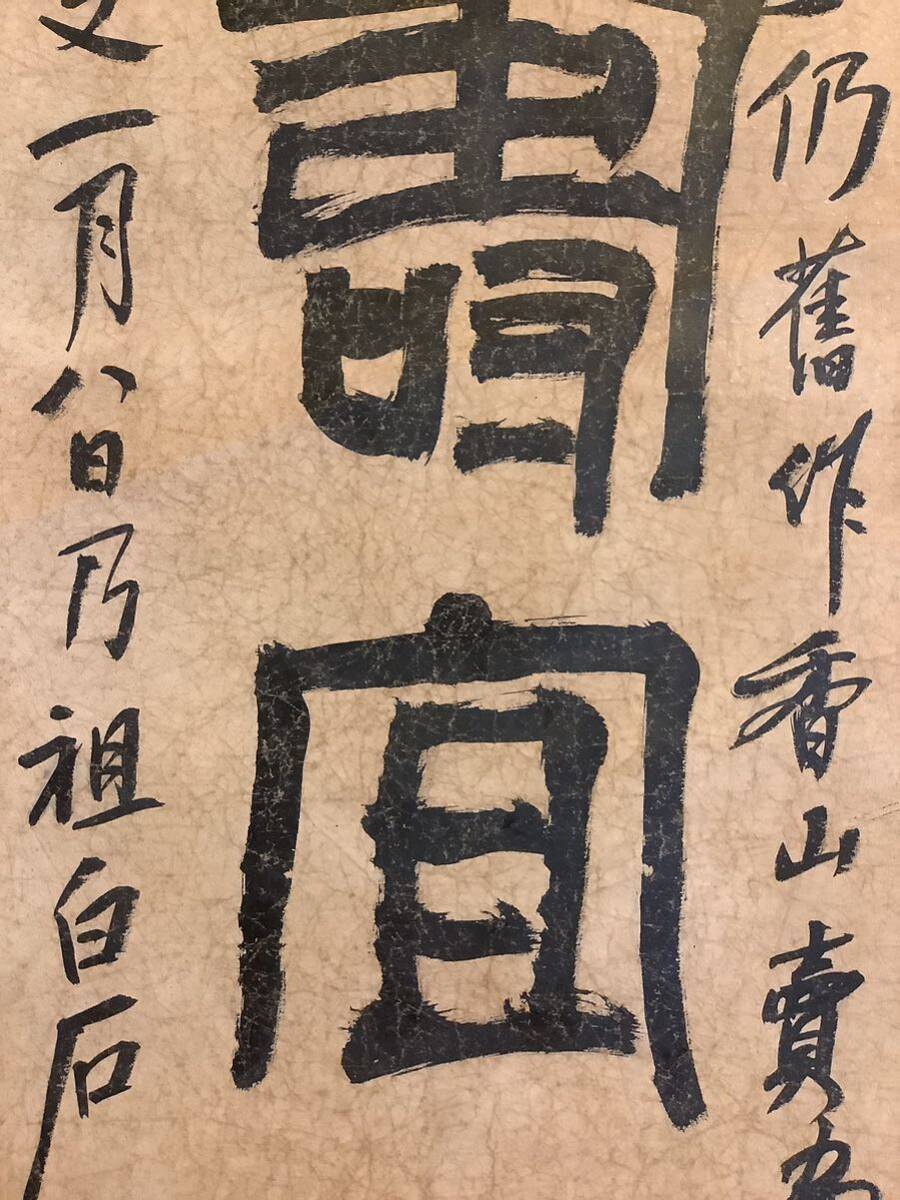 仍舊作香山賣
壽宜
一月八日乃祖白石